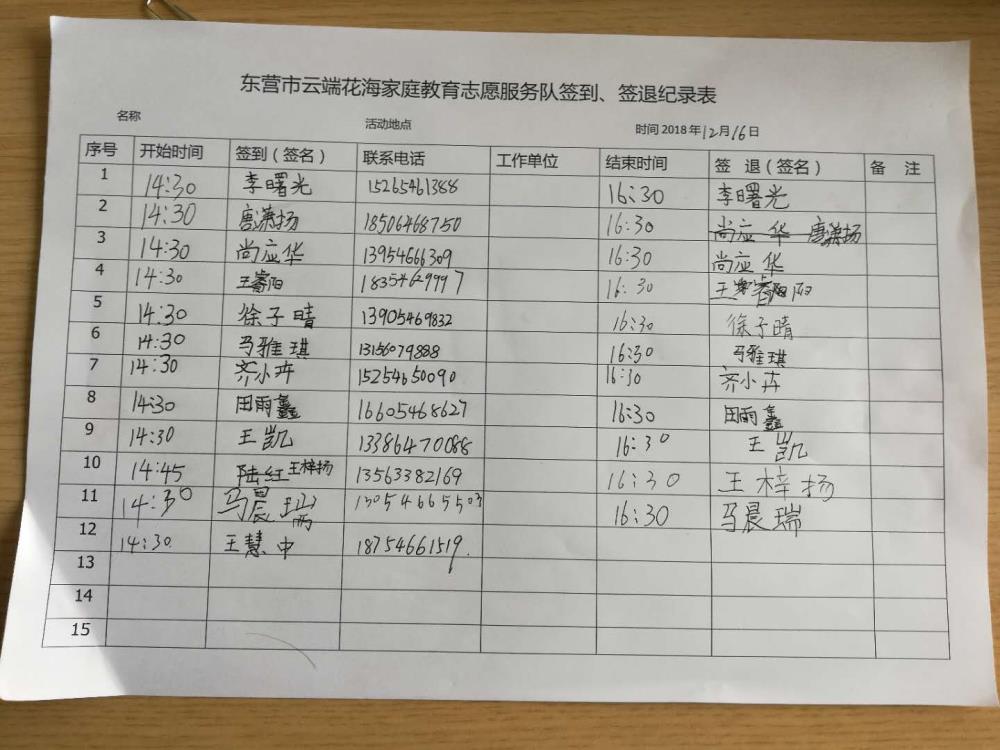 东营市云端花海家庭教育志愿服务队签到、签退纪录表
名称 活动地点 时间 2018年12月16日
序号 开始时间 签到(签名) 联系电话 工作单位 结束时间 签 退(签名) 备 注
1 14:30 李曙光 15265461388 16:30 李曙光
2 14:30 唐潇扬 18506468750 16:30 尚应华 唐潇扬
3 14:30 尚应华 13954666309 16:30 尚应华
4 14:30 王睿阳 18354629997 16:30 王睿阳
5 14:30 徐子晴 13905469832 16:30 徐子晴
6 14:30 马雅琪 13156079888 16:30 马雅琪
7 14:30 齐小卉 15254650090 16:30 齐小卉
8 14:30 田雨鑫 16605468627 16:30 田雨鑫
9 14:30 王凯 13386470088 16:30 王凯
10 14:45 陆红 王梓扬 13563382169 16:30 王梓扬
11 14:30 马晨瑞 15054665503 16:30 马晨瑞
12 14:30 王慧中 18754661519.
13
14
15